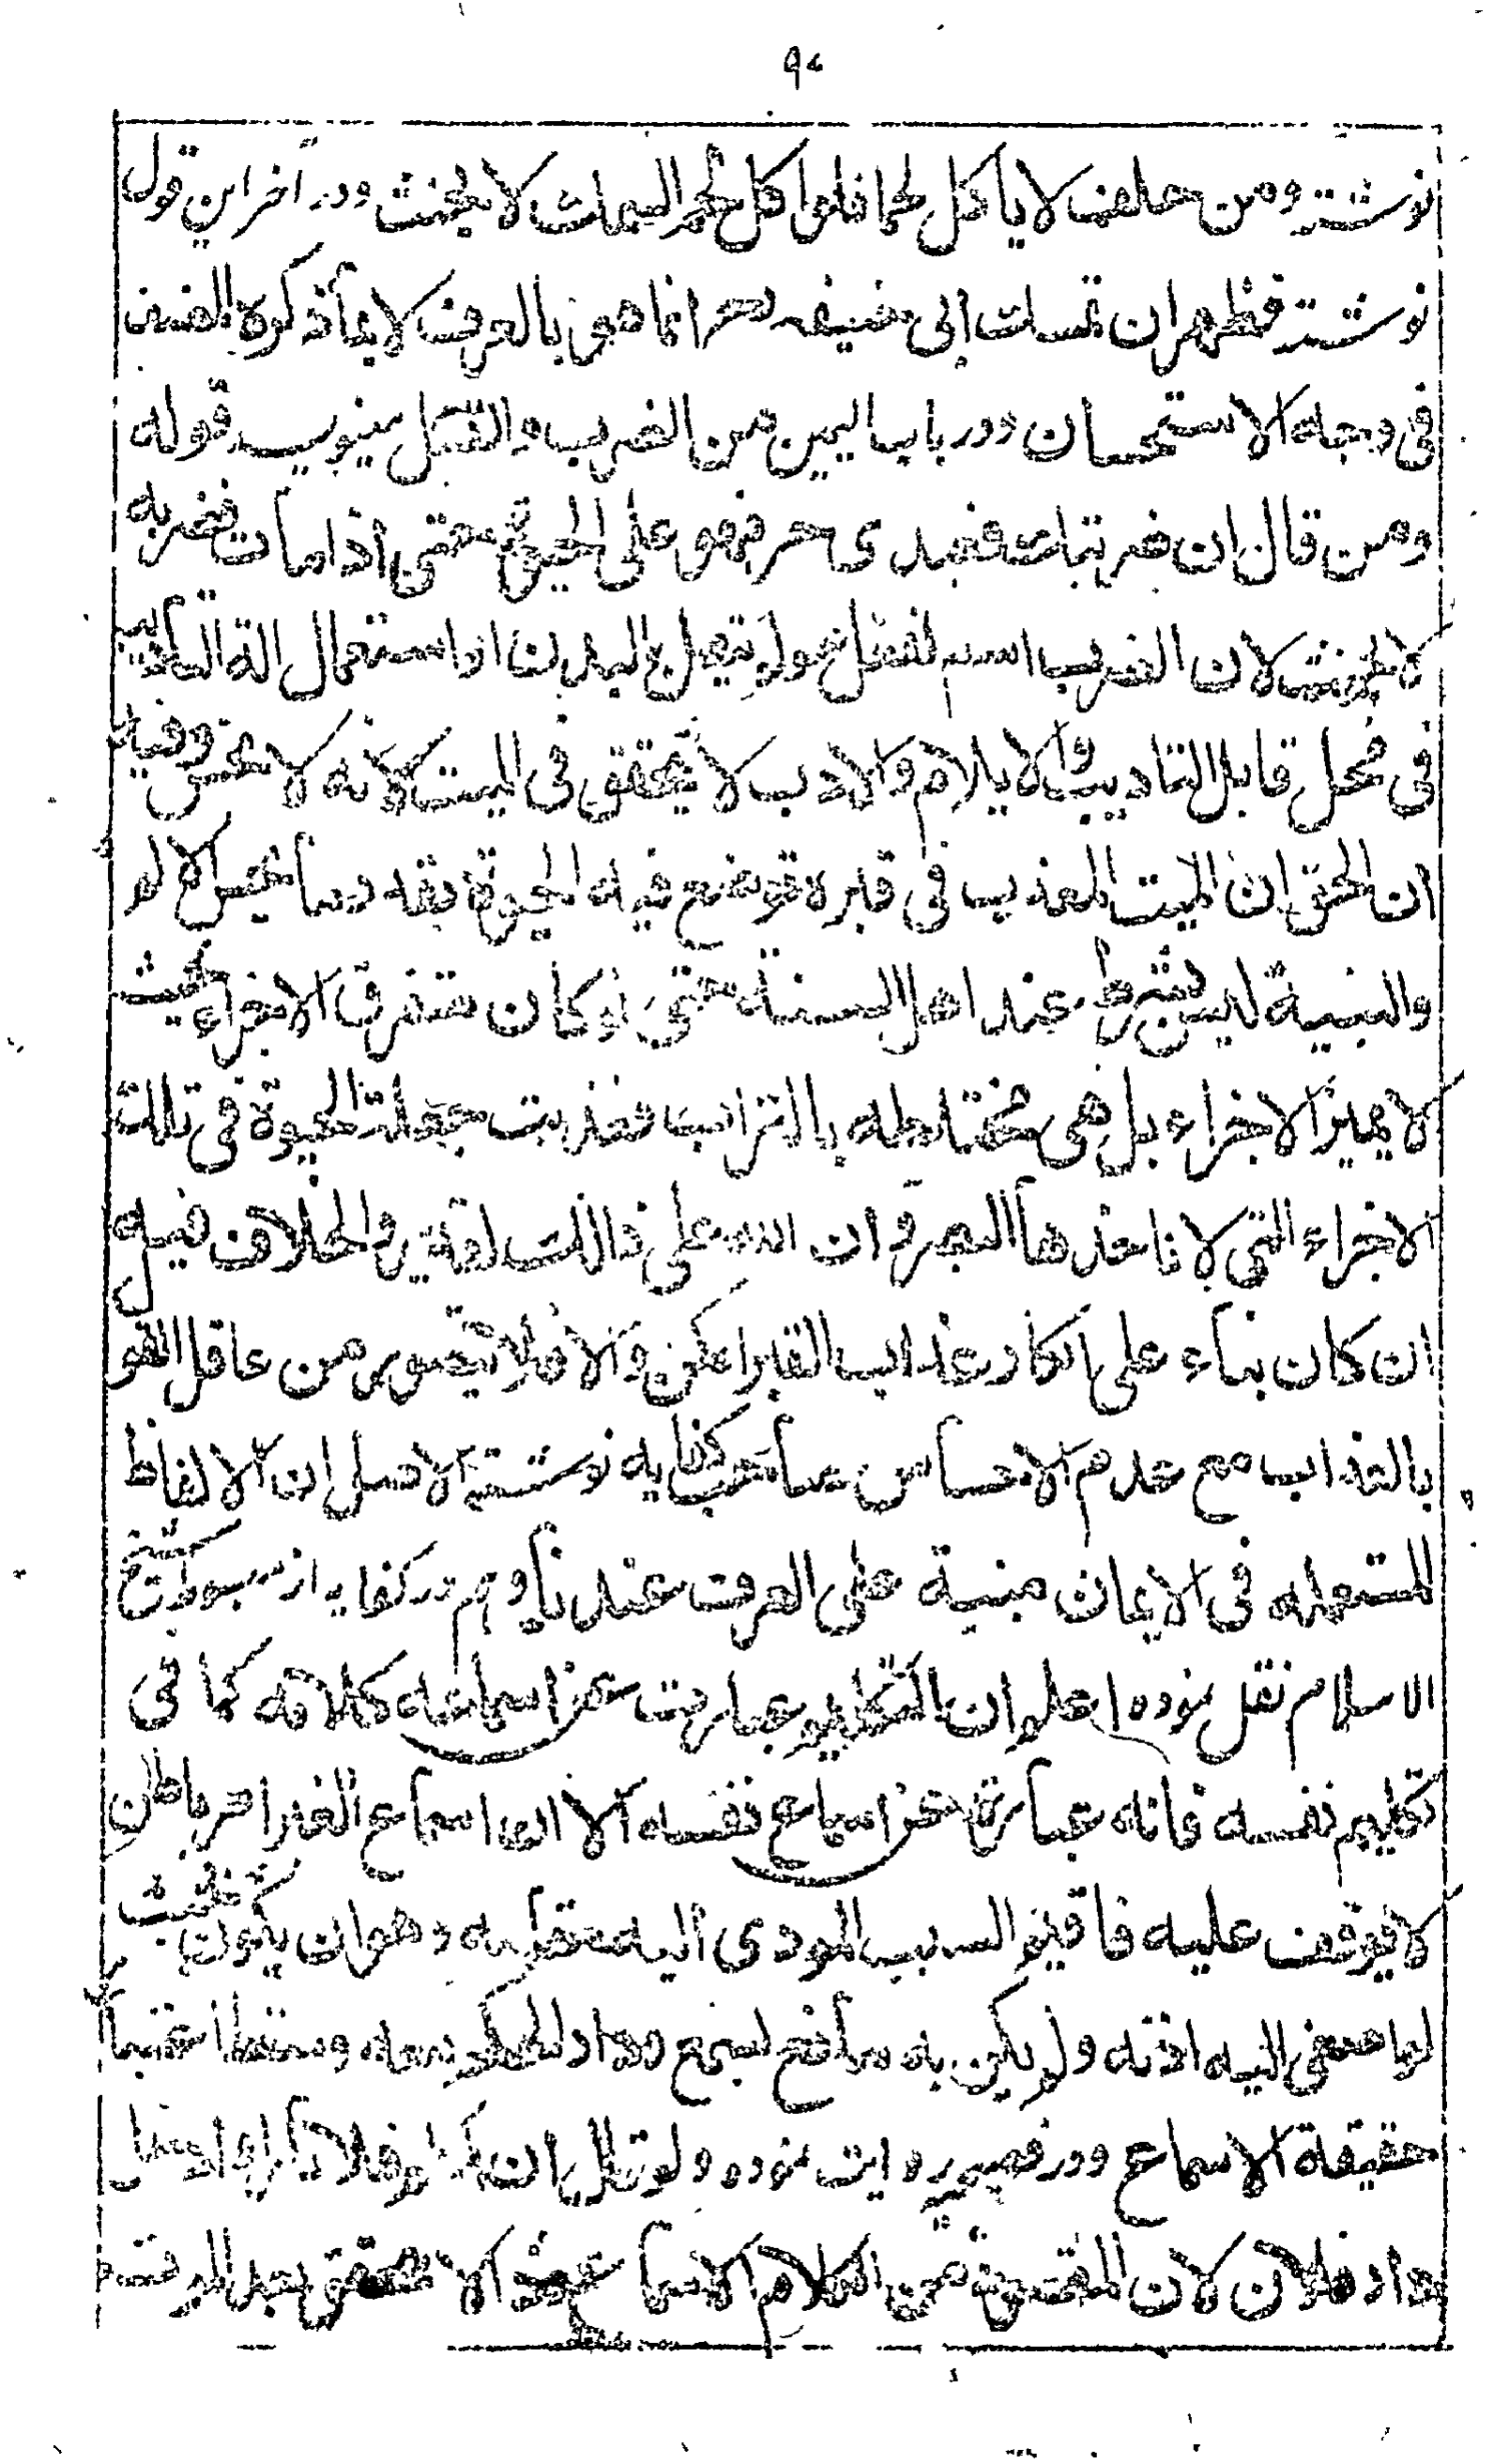 نوشته ومن حلف لا یاکل لحما فاکل لحم السمک لا یحنث ودر آخر این قول
نوشته فظهر ان تمسک ابی حنیفه رحمه انما هو بالعرف لا بما ذکره المصنف
فی وجه الاستحسان ودر باب الیمین من الضرب والقتل مینویسد قوله
ومن قال ان ضربتک فعبدی حر فهو علی الحیوة حتی اذا مات فضربه
لا یحنث لان الضرب اسم لفعل مولم یتصل بالبدن او استعمال الة التادیب
فی محل قابل التادیب والایلام والادب لا یتحقق فی المیت لانه لا یحس وفیه
ان الحق ان المیت المعذب فی قبره توضع فیه الحیوة بقدر ما یحس الالم
والبنیة لیس بشرط عند اهل السنة حتی لو کان متفرق الاجزاء بحیث
لا یمیز الاجزاء بل هی مختلطه بالتراب فعذبت جعلت الحیوة فی تلک
الاجزاء التی لا تاخذها البصر وان الله علی ذالک لقدیر والخلاف فیه
ان کان بناء علی انکار عذاب القبر امکن والا فلا یتصور من عاقل القو
بالعذاب مع عدم الاحساس صاحب کفایه نوشته الاصل ان الالفاظ
المستعمله فی الایمان مبنیة علی العرف عندنا وهم در کفایه از مبسوط شیخ
الاسلام نقل نموده اعلم ان التکلیم عبارت عن اسماعه کلامه کما فی
تکلیم نفسه فانه عبارة عن اسماع نفسه الا ان اسماع الغیر امر باطن
لا یوقف علیه فاقیم السبب المودی الیه مقامه وهو ان یکون بحیث
لو اصغی الیه اذنه ولم یکن به مانع لسمع ودار الحکم معه وسقط اعتبار
حقیقة الاسماع ودر فصیریه ایت نموده ولو قال ان کلم فلانا او دخل
دار فلان لان المقصود من الکلام الاسماع وهذا لا یتحقق بعد الموت